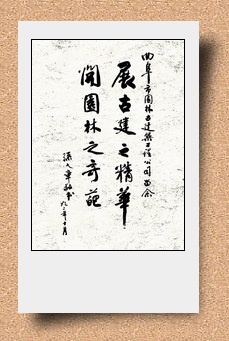 曲阜市園林古建築工程公司留念
展古建之精華
開園林之奇葩
九二年十月